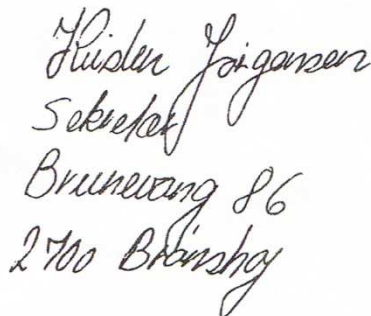 Kirsten Jörgensen
Sekretær
Brunevang 86
2700 Brönshøj